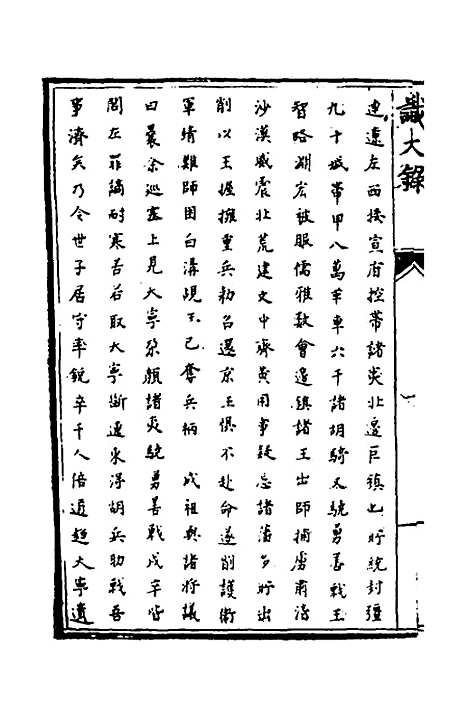 識大錄
連遼左西接宣府控帶諸夷北邊巨鎮也所統封疆
九十城帶甲八萬革車六千諸胡騎尤驍勇善戰王
智略淵宏被服儒雅數會邊鎮諸王出師捕虜肅清
沙漠威震北荒建文中齊黃用事疑忌諸藩多所出
削以王握擁重兵勑召還京王懼不赴命遂削護衛
軍靖難師困白溝覘王已奪兵柄 成祖與諸將議
曰曩余巡塞上見大寧朶顏諸夷驍勇善戰戍卒皆
閭左罪謫耐寒苦若取大寧斷遼東得胡兵助戰吾
事濟矣乃令世子居守率銳卒千人倍道趨大寧遺